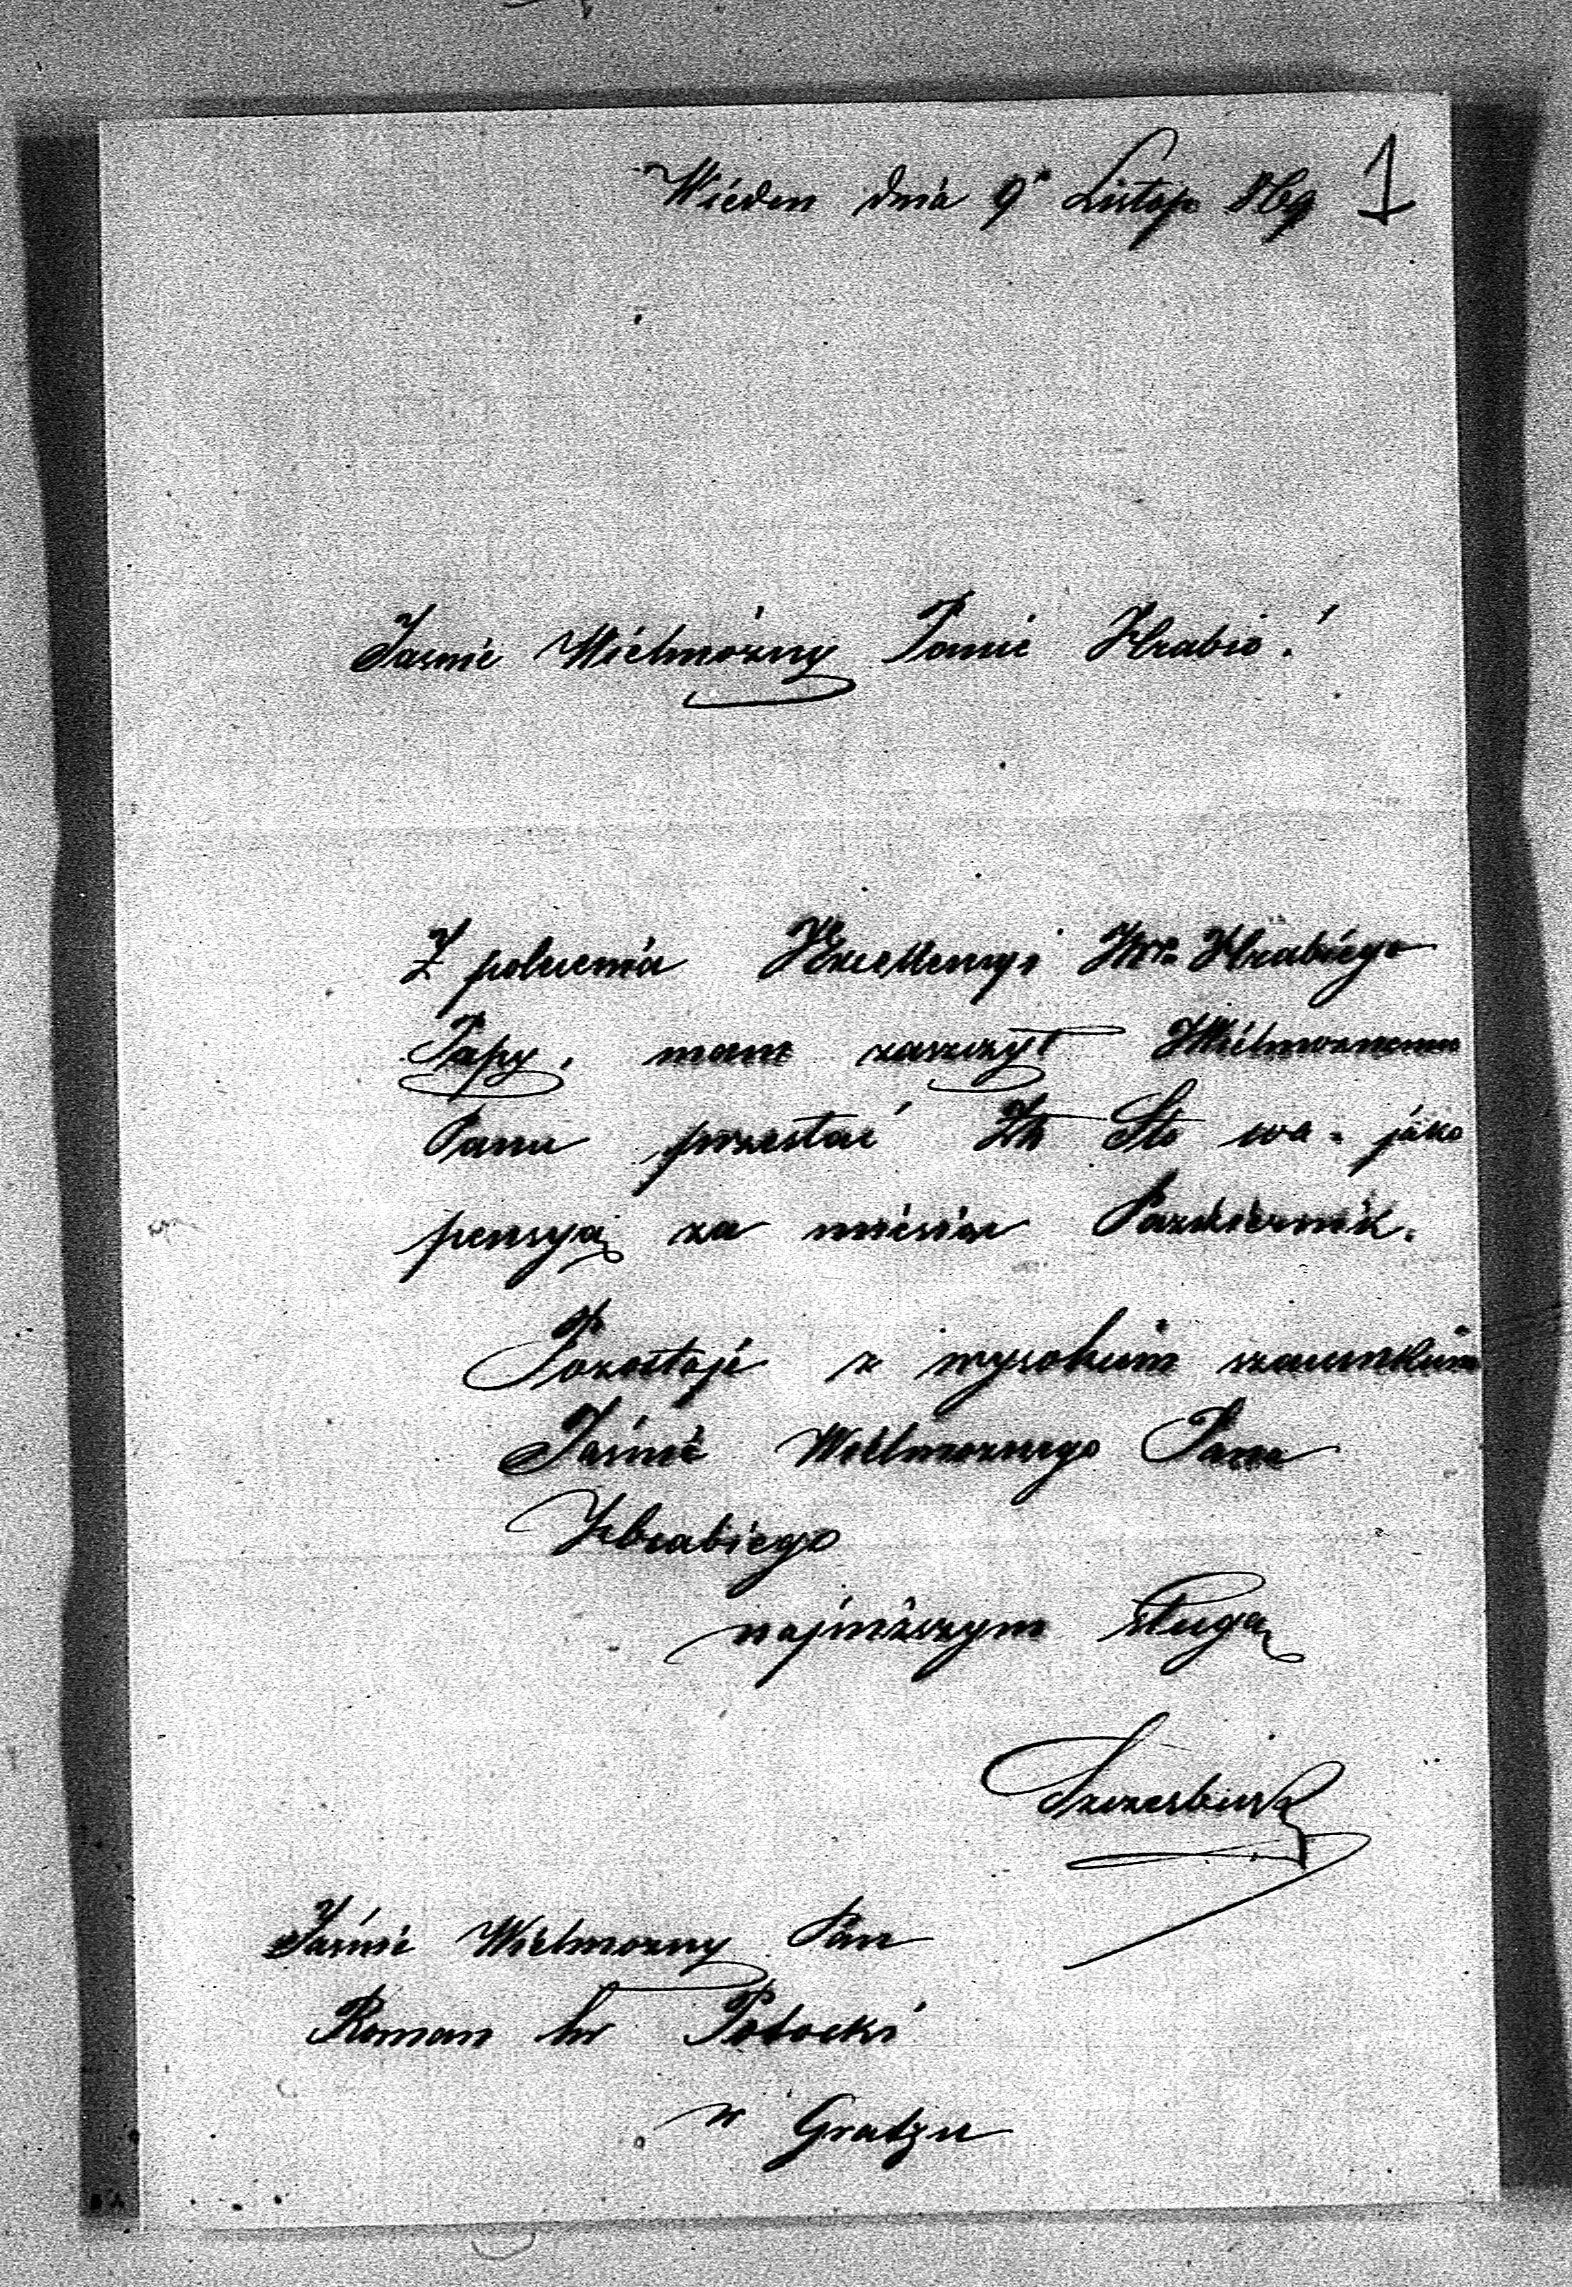 Wiédeń dnia 9 Listop. 869 1
Jaśnie Wielmożny Panie Hrabio!
Z polecenia JExcellencyi JW. Hrabiego
Papy, mam zaszczyt JWielmożnemu
Panu przesłać Zł Sto wa. jako
pensyą za miesiąc Pazdziernik.
Pozostaję z wysokim szacunkiem
Jaśnie Wielmożnego Pana
Hrabiego
najniższym sługą
Jaśnie Wielmożny Pan
Roman hr Potocki
w Gratzu